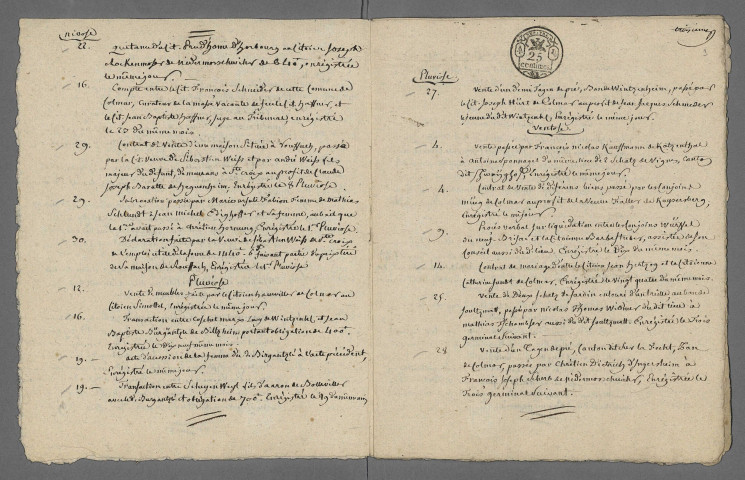 nivose
22. quittance du Cit. Prud'home d'Horbourg au Citoien Joseph
de Nidermorschwihr de 640#, enregistrée
le même jour.
16. Compte entre le Cit. François Schneider de cette Commune de
Colmar, Curateur de la masse vacante de feu le Cit. Haffner, et
le Cit. Jean Baptiste Haffner, juge au Tribunal enregistré
le 23 du même mois.
29. Contrat de Vente d'une maison Située à Rouffach, passée
par la Cit. Veuve de Sébastien Weiss et par André Weiss fils
majeur du défunt, demeurans à Ste Croix au profit de Claude
Joseph Baratte de herguenheim, Enregistrée le 8 Pluviose.
29. passée par Marie Ursule Fabion femme de Mathias
Schmidt & Jean michel et sa femme, autant que
le 1er avait passé à Chrétien Hornung, Enregistrée le 1er Pluviose.
30. Déclaration faite par la Veuve de Sebastien Weiss de Ste Croix
de l'emploi utile de la somme de 1240# 6s faisant partie du prix
de la maison de Rouffach, Enregistrée le 1er Pluviose
Pluviose
12. Vente de meubles faite par le Citoien de Colmar au
Citoien Simottel, Enregistrée le même jour.
16. Transaction entre Coschel marx Levy de Wintzenheim, et Jean
Baptiste Burgantzlé de Bilsheim portant obligation de 400#.
Enregistrée le Dix neuf même mois.
19. acte d'accession de la femme du d. Birgantzlé à l'acte précédent,
Enregistré le même jour.
19. Transaction entre Scheyen Weyl fils d'aaron de Bollwiller
avec led. Burgantzlé et obligation de 700#. Enregistrée le 29 du même mois
troisieme
3
25
centimes
Pluviose
27. Vente d'un demi fagen de pré, Ban de Wintzenheim, passée par
le Cit. Joseph Hürt de Colmar au profit de Jean Jacques Schmeder
Vigneron du dit Wintzenheim, Enregistrée le même jour.
Ventose
4. Vente passée par François nicolas Kauffmann de Katzenthal
à Antoine Sponnagel du même lieu de 2 Schatz de Vignes, Canton
dit , Enregistrée le même jour.
4. Contrat de Vente de différens biens passée par les Conjoints
müng de Colmar au profit de la Veuve Faller de Kaysersberg,
enregistrée le même jour.
9. Procès verbal sur liquidation entre les Conjoins Würssel
du neuf-Brisac et la Citoienne Barbe Stirber, assistée de son
Conseil aussi du dit lieu, Enregistré le Dix du même mois.
14. Contrat de mariage d'entre le Citoien Jean Hertzog et la Citoienne
Catharine du dit Colmar, Enregistrée le Vingt quatre du même mois.
25. Vente de Deux Schatz de Jardin entouré d'un treillis au ban de
Soultzmatt, passée par nicolas Thomas Widmer du dit lieu à
mathias Tschamber aussi du dit Soultzmatt Enregistrée le Trois
germinal suivant.
28. Vente d'un Tagen de pré, Canton dit her la Fecht, Ban
de Colmar, passée par Chrétien Dietrich d'Ingersheim à
François Joseph de Nidermorschwihr, Enregistrée le
Trois germinal suivant.